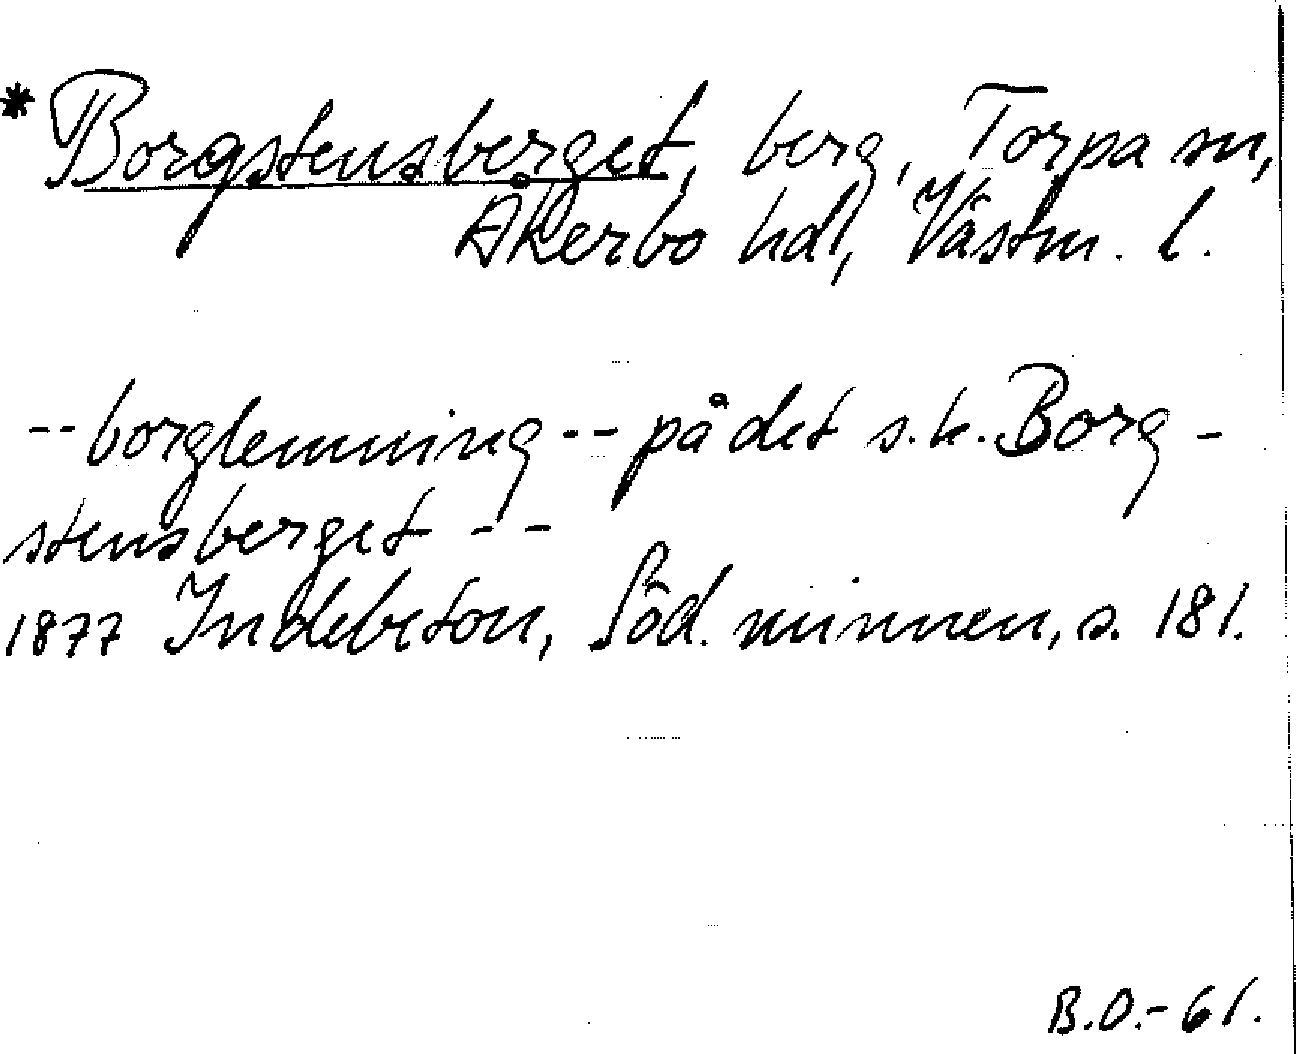 * Borgstensberget, berg, Torpa sn,
Åkerbo hd, Västm. l.
-- borglemning -- på det s.k. Borg-
stensberget --
1877 Indebetou, Söd. minnen, s. 181.
B.O.-61.